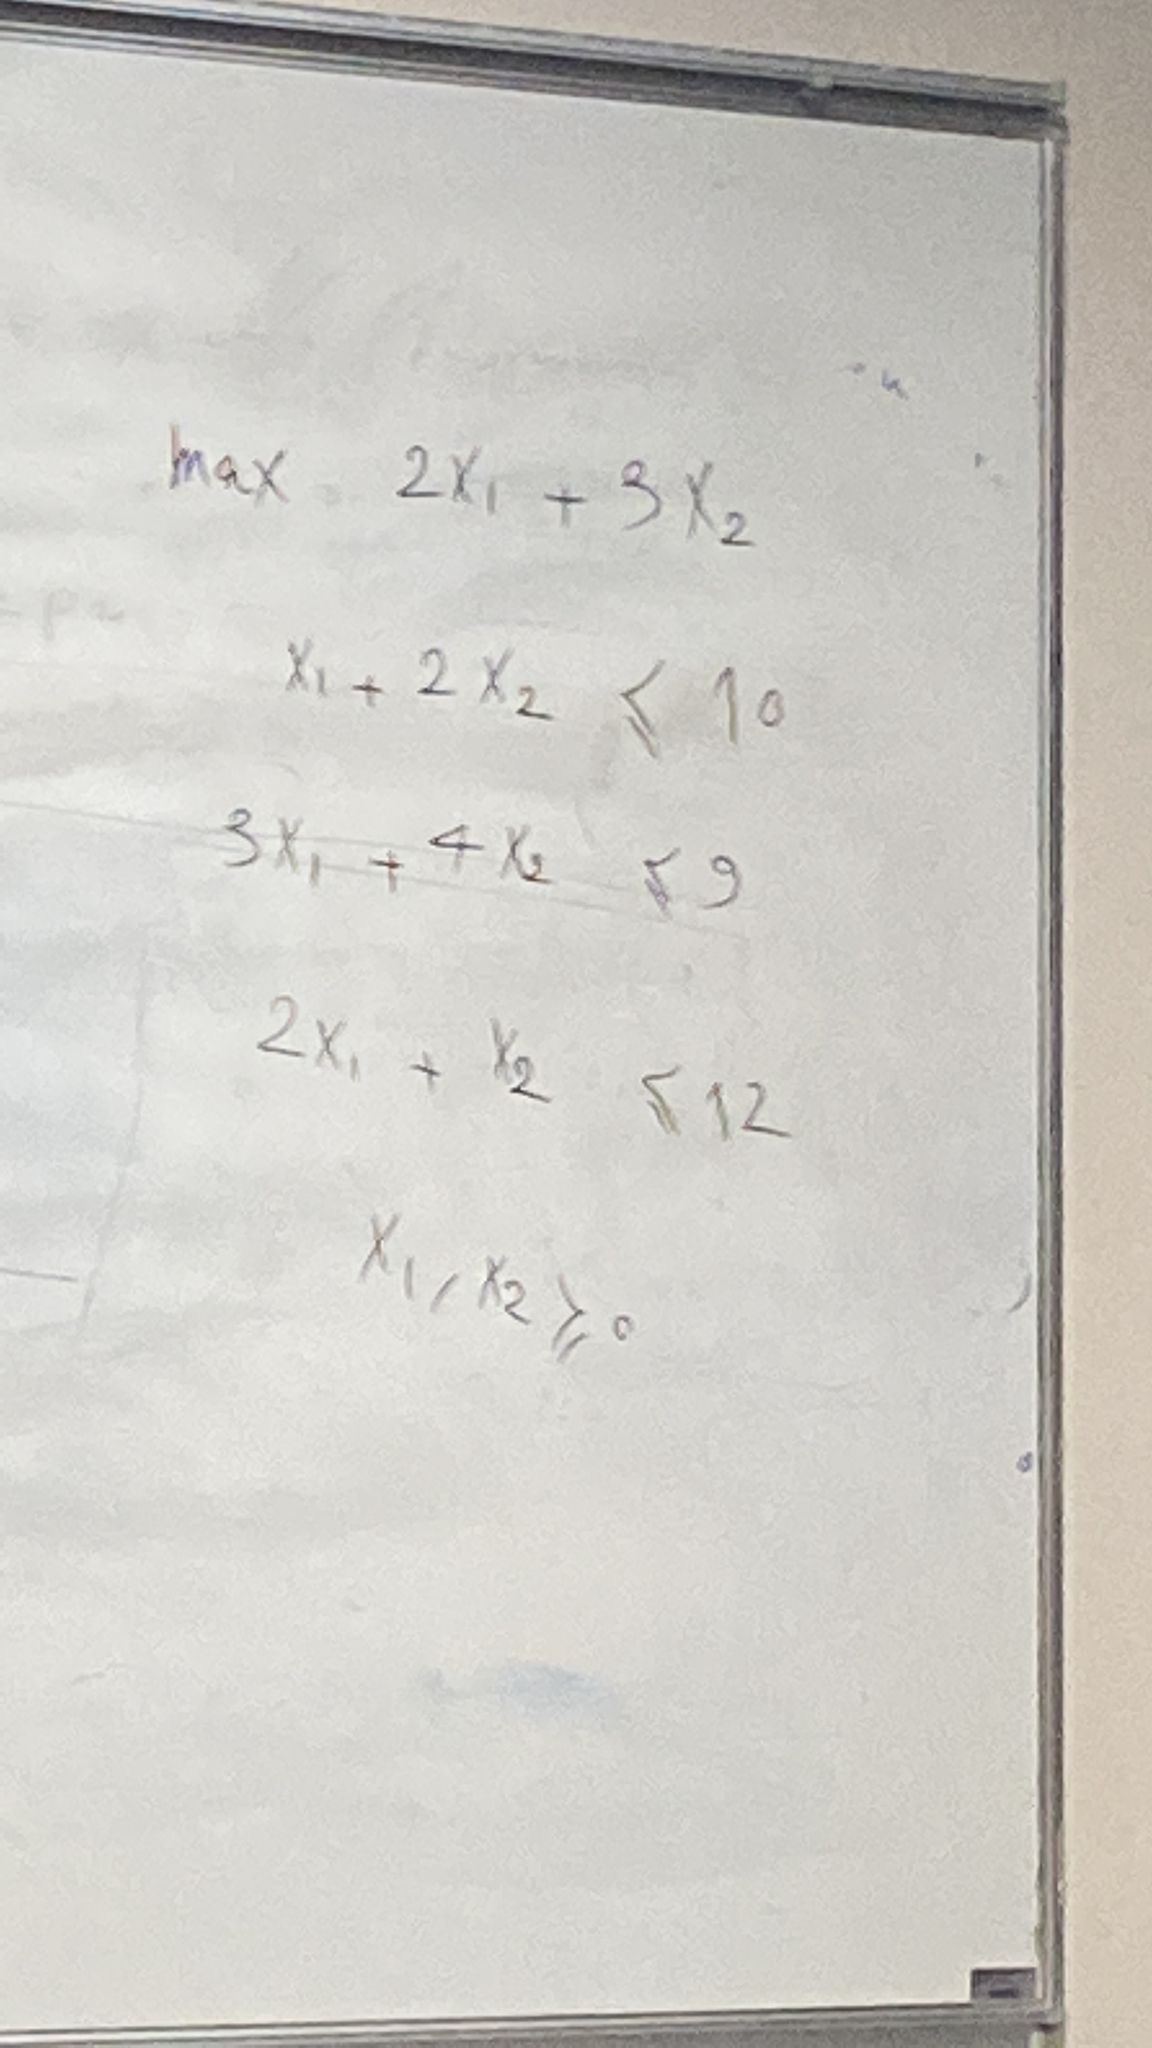 max 2x₁ + 3x₂
x₁ + 2x₂ ⩽ 10
3x₁ + 4x₂ ⩽ 9
2x₁ + x₂ ⩽ 12
x₁, x₂ ⩾ 0